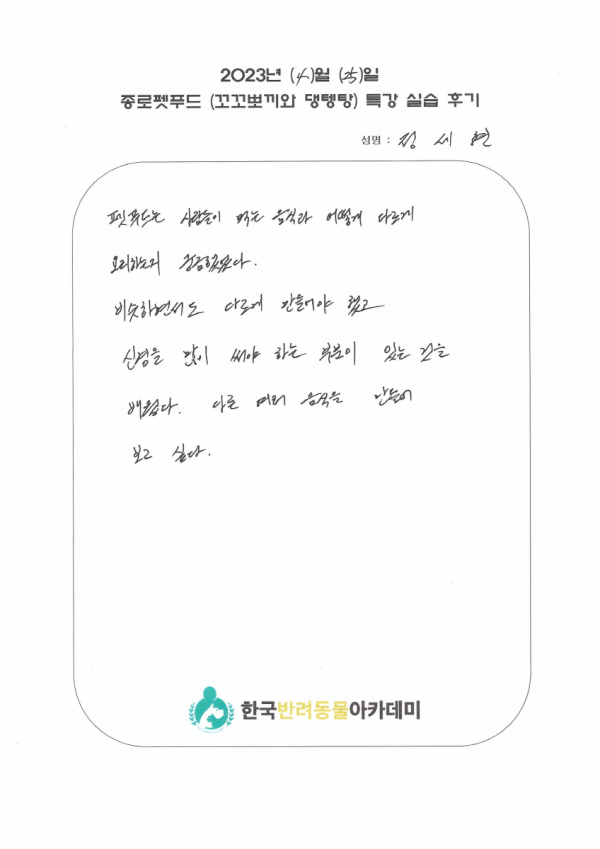 2023년 (4)월 (25)일
종로펫푸드 (꼬꼬뽀끼와 댕텡탕) 특강 실습 후기
성명 : 정세현
펫푸드는 사람들이 먹는 음식과 어떻게 다르게
요리하는지 궁금했었다.
비슷하면서도 다르게 만들어야 했고
신경을 많이 써야 하는 부분이 있는 것을
배웠다. 다른 여러 음식을 만들어
보고 싶다.
한국반려동물아카데미